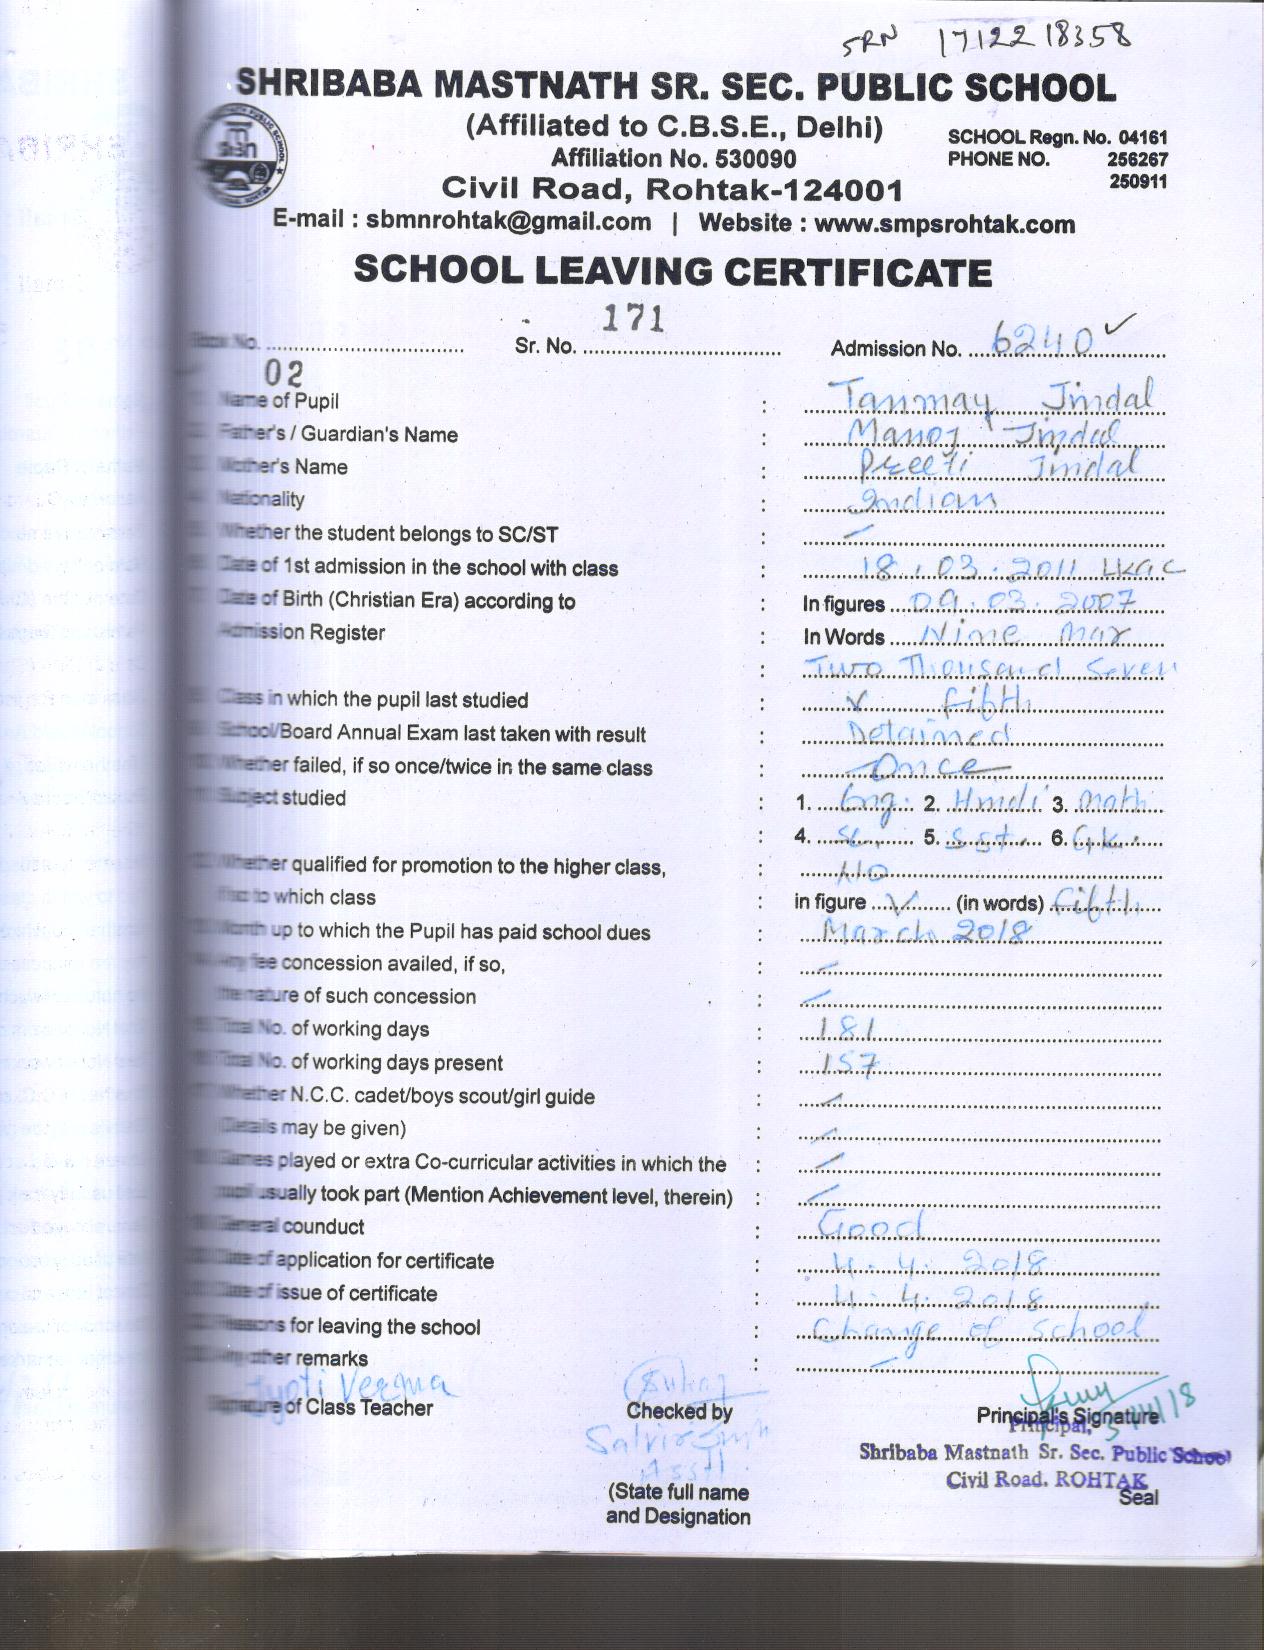 SRN 1712218358
SHRIBABA MASTNATH SR. SEC. PUBLIC SCHOOL
(Affiliated to C.B.S.E., Delhi)
SCHOOL Regn. No. 04161
Affiliation No. 530090
PHONE NO. 256267
250911
Civil Road, Rohtak-124001
E-mail : sbmnrohtak@gmail.com | Website : www.smpsrohtak.com
SCHOOL LEAVING CERTIFICATE
Book No. 02 Sr. No. 171 Admission No. 6240
Name of Pupil : Tanmay Jindal
Father's / Guardian's Name : Manoj Jindal
Mother's Name : Preeti Jindal
Nationality : Indian
Whether the student belongs to SC/ST : —
Date of 1st admission in the school with class : 18.03.2011 LKG C
Date of Birth (Christian Era) according to : In figures 09.03.2007
Admission Register : In Words Nine Mar
: Two Thousand Seven
Class in which the pupil last studied : V Fifth
School/Board Annual Exam last taken with result : Detained
Whether failed, if so once/twice in the same class : Once
Subject studied : 1. Eng. 2. Hindi 3. Math
: 4. Sc. 5. S.St. 6. G.k.
Whether qualified for promotion to the higher class, : No
if so to which class : in figure V (in words) Fifth
Month up to which the Pupil has paid school dues : March 2018
Any fee concession availed, if so, : —
the nature of such concession : —
Total No. of working days : 181
Total No. of working days present : 157
Whether N.C.C. cadet/boys scout/girl guide : —
(Details may be given) : —
Games played or extra Co-curricular activities in which the : —
pupil usually took part (Mention Achievement level, therein) : —
General counduct : Good
Date of application for certificate : 4.4.2018
Date of issue of certificate : 4.4.2018
Reasons for leaving the school : Change of School
Any other remarks : —
Jyoti Verma
Signature of Class Teacher Checked by Principal's Signature
Principal,
Shribaba Mastnath Sr. Sec. Public School
Civil Road. ROHTAK
Seal
(State full name
and Designation